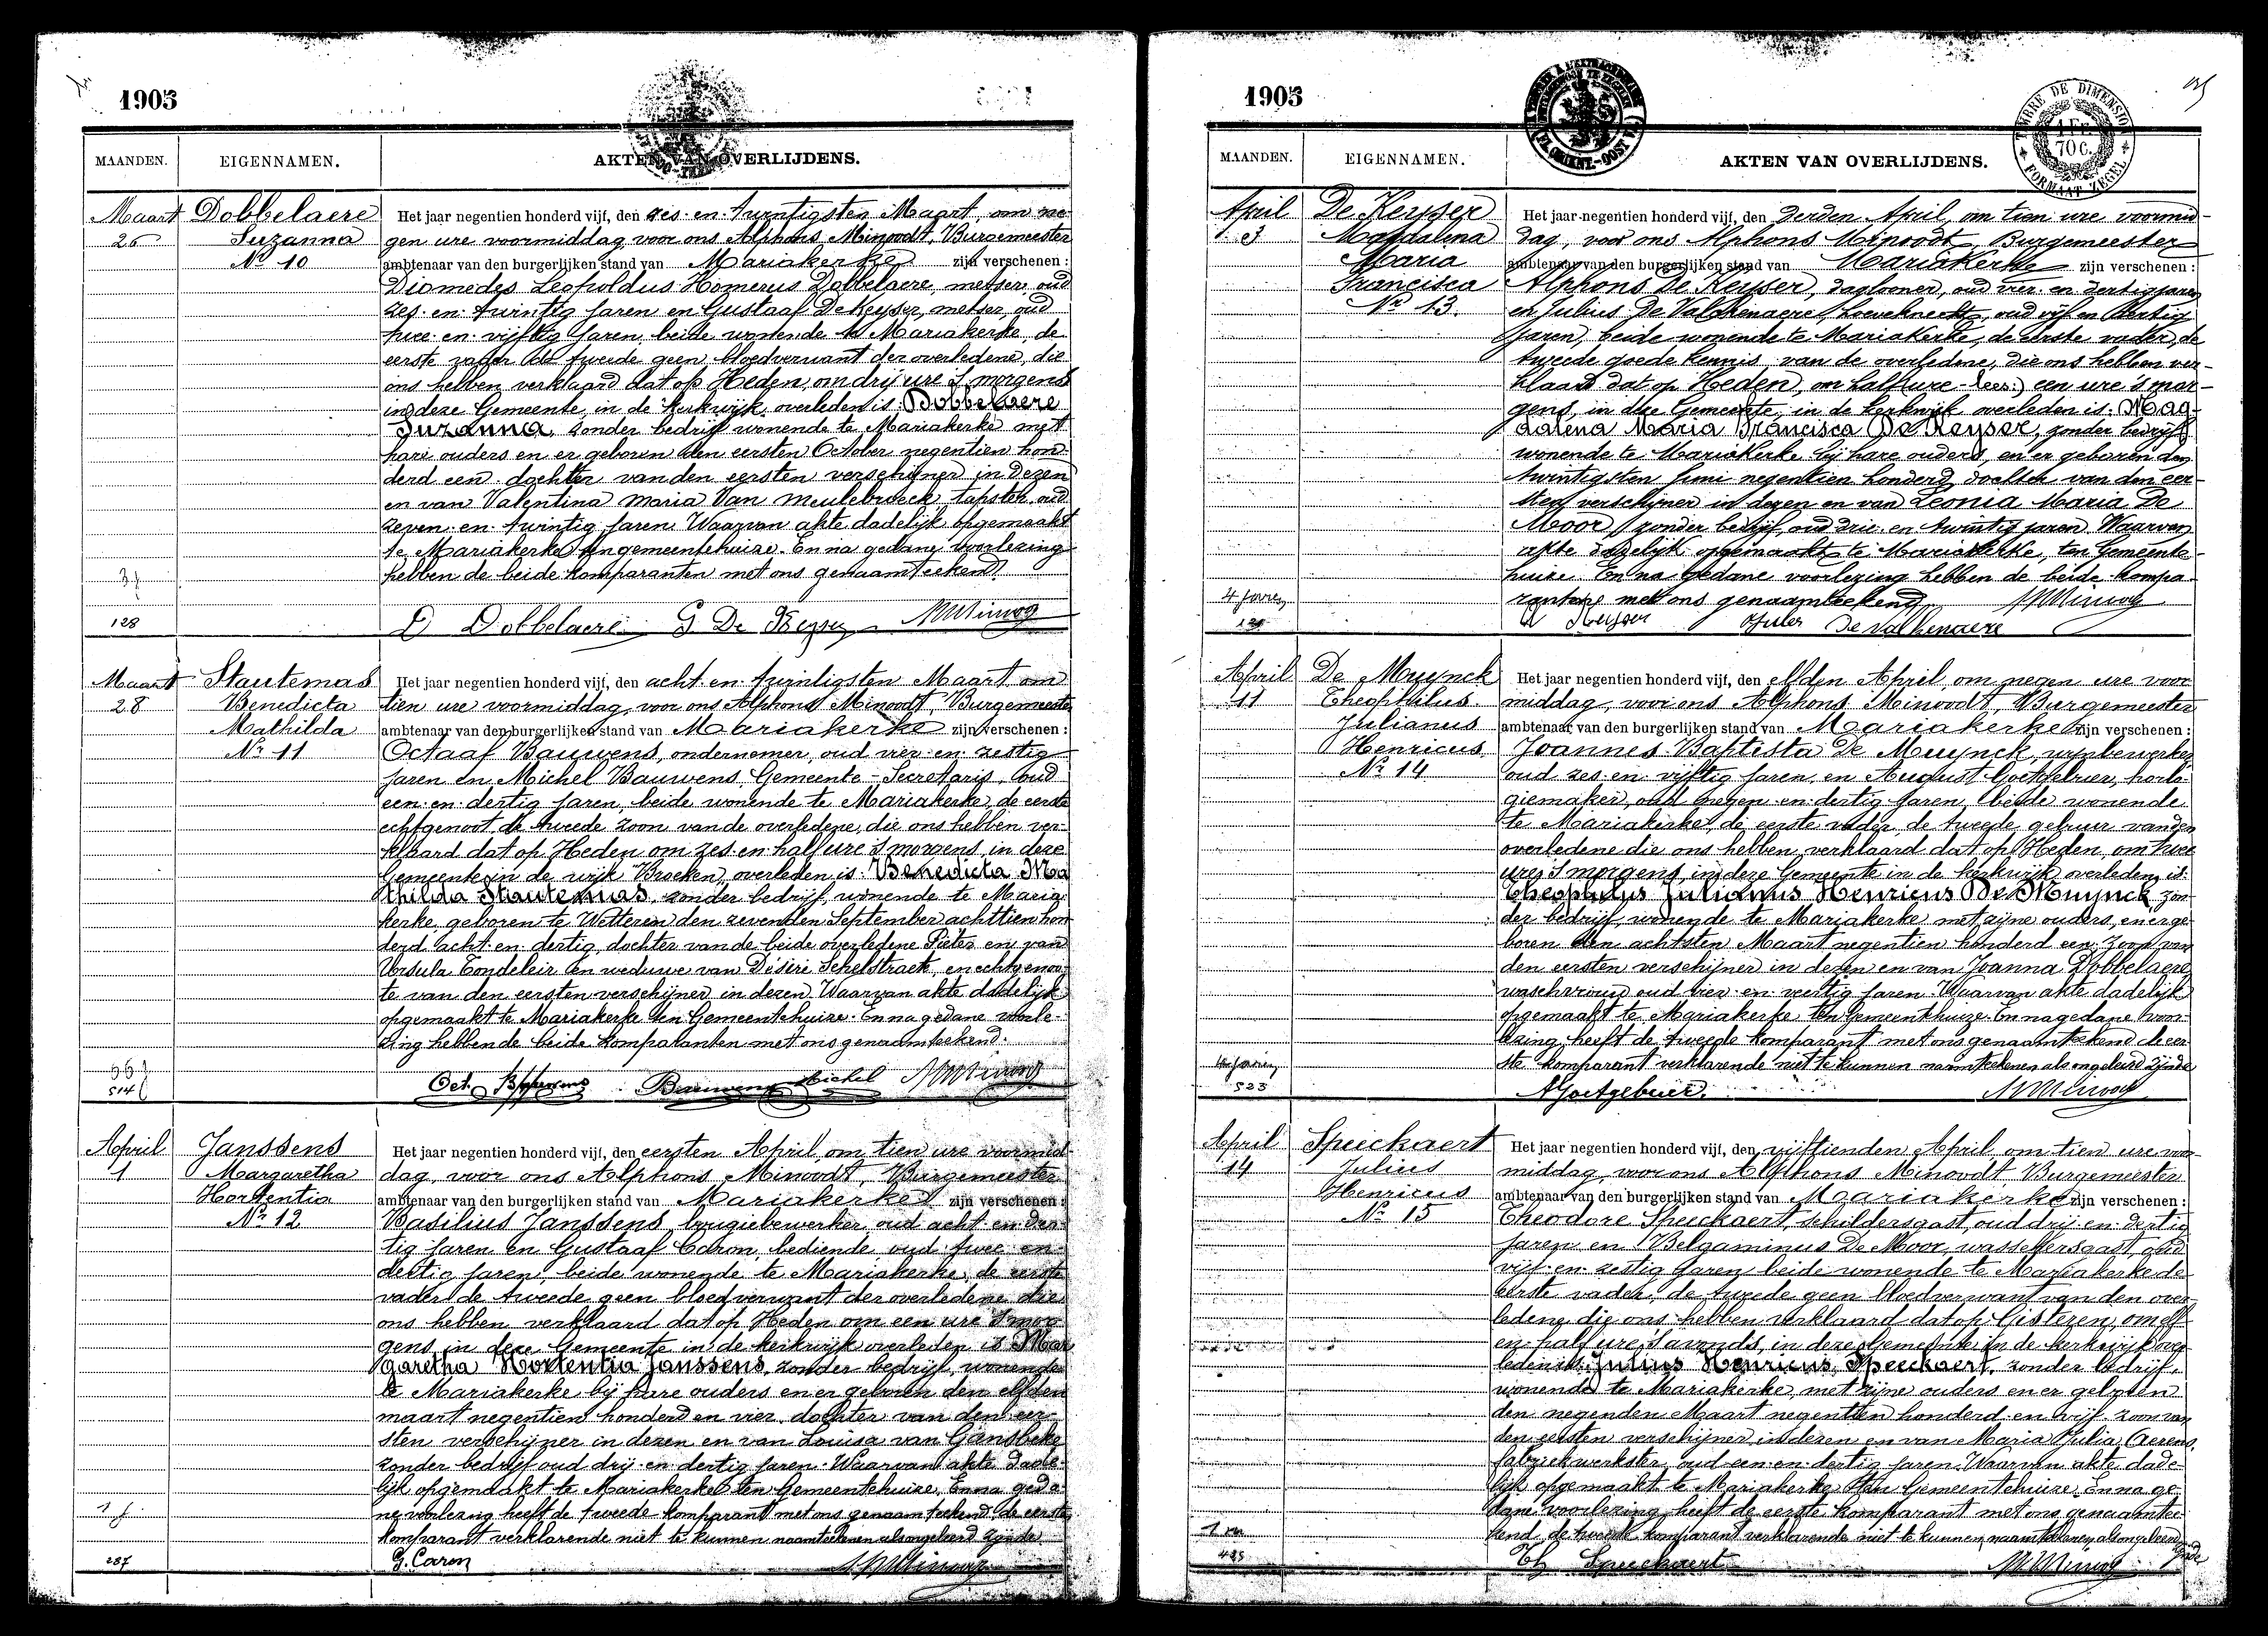 1905
MAANDEN. EIGENNAMEN. AKTEN VAN OVERLIJDENS.
Maart
26
Dobbelaere
Suzanna
No 10
Het jaar negentien honderd vijf, den zes-en-twintigsten Maart, om ne-
gen ure voormiddag voor ons Alphons Minoodt, Burgemeester
ambtenaar van den burgerlijken stand van Mariakerke zijn verschenen :
Diomedes Leopoldus Homerus Dobbelaere, metser, oud
zes-en-twintig jaren en Gustaaf De Keyser, metser, oud
twee-en-vijftig jaren, beide wonende te Mariakerke, de
eerste vader de tweede geen bloedverwant der overledene, die
ons hebben verklaard dat op Heden, om drij ure 's morgens
in deze Gemeente, in de kerkwijk overleden is: Dobbelaere
Suzanna, zonder bedrijf wonende te Mariakerke met
hare ouders en er geboren den eersten October negentien hon-
derd een, dochter van den eersten verschijner in dezen
en van Valentina Maria Van Meulebroeck, tapster, oud
zeven-en-twintig jaren. Waarvan akte dadelijk opgemaakt
te Mariakerke ten gemeentehuize. En na gedane voorlezing
hebben de beide komparanten met ons genaamteekend.
3 j
128
D Dobbelaere G. De Keyser
Maart
28
Stautemas
Benedicta
Mathilda
Nr 11
Het jaar negentien honderd vijf, den acht-en-twintigsten Maart om
tien ure voormiddag, voor ons Alphons Minoodt, Burgemeester
ambtenaar van den burgerlijken stand van Mariakerke zijn verschenen :
Octaaf Bauwens, ondernemer, oud vier-en-zestig
jaren en Michel Bauwens, Gemeente-Secretaris, oud
een-en-dertig jaren, beide wonende te Mariakerke, de eerste
echtgenoot, de tweede zoon van de overledene, die ons hebben ver-
klaard dat op Heden om zes-en-half ure 's morgens, in deze
Gemeente in de wijk Broeken, overleden is: Benedicta Ma
thilda Stautemas, zonder bedrijf, wonende te Maria-
kerke, geboren te Wetteren den zevenden September achttien hon-
derd acht-en-dertig, dochter van de beide overledene Pieter en van
Ursula Tondeleir en weduwe van Désiré Schelstraete, en echtgenoo-
te van den eersten verschijner in dezen. Waarvan akte dadelijk
opgemaakt te Mariakerke ten Gemeentehuize. En na gedane voorle-
zing hebben de beide komparanten met ons genaamteekend.
514
Oct. Bauwens Bauwens Michel
April
1
Janssens
Margaretha
Hortentia
Nr 12
Het jaar negentien honderd vijf, den eersten April, om tien ure voormid-
dag, voor ons Alphons Minoodt, Burgemeester
ambtenaar van den burgerlijken stand van Mariakerke zijn verschenen :
Basilius Janssens, bougiebewerker oud acht-en-der-
tig jaren en Gustaaf Caron, bediende oud twee-en-
dertig jaren, beide wonende te Mariakerke, de eerste
vader de tweede geen bloedverwant der overledene die
ons hebben verklaard, dat op Heden om een ure 's mor-
gens, in deze Gemeente in de kerkwijk overleden is Mar
garetha Hortentia Janssens, zonder bedrijf, wonende
te Mariakerke bij hare ouders en er geboren den elfden
maart negentien honderd en vier, dochter van den eer-
sten verschijner in dezen en van Louisa van Gansbeke
zonder bedrijf oud drij-en-dertig jaren. Waarvan akte dade-
lijk opgemaakt te Mariakerke ten Gemeentehuize. En na geda-
ne voorlezing heeft de tweede komparant met ons genaamteekend, de eerste
komparant verklarende niet te kunnen naamteekenen als ongeleerd zijnde
1 j.
287
G. Caron
1905
TIMBRE DE DIMENSION
1 Fr.
70 c.
FORMAAT ZEGEL
MAANDEN. EIGENNAMEN. AKTEN VAN OVERLIJDENS.
April
3
De Keyser
Magdalena
Maria
Francisca
Nr 13.
Het jaar negentien honderd vijf, den derden April, om tien ure voormid-
dag, voor ons Alphons Minoodt, Burgemeester
ambtenaar van den burgerlijken stand van Mariakerke zijn verschenen :
Alphons De Keyser, daglooner, oud vier-en-dertig jaren
en Julius De Valckenaere, hoveknecht, oud vijf en dertig
jaren, beide wonende te Mariakerke, de eerste vader, de
tweede goede kennis van de overledene, die ons hebben ver-
klaard dat op Heden, om half ure (lees:) een ure 's mor-
gens, in deze Gemeente, in de kerkwijk overleden is: Mag-
dalena Maria Francisca De Keyser, zonder bedrijf
wonende te Mariakerke bij hare ouders, en er geboren den
twintigsten Juni negentien honderd, dochter van den eer-
sten verschijner in dezen en van Leonia Maria De
Moor, zonder bedrijf, oud drie-en-twintig jaren. Waarvan
akte dadelijk opgemaakt te Mariakerke, ten Gemeente-
huize. En na gedane voorlezing hebben de beide kompa-
ranten met ons genaamteekend
4 jaren
A Keyser Jules De Valkenaere
April
11
De Muynck
Theophilus
Julianus
Henricus
Nr 14
Het jaar negentien honderd vijf, den elfden April, om negen ure voor
middag, voor ons Alphons Minoodt, Burgemeester
ambtenaar van den burgerlijken stand van Mariakerke zijn verschenen :
Joannes Baptista De Muynck, wijnbewerker,
oud zes-en-vijftig jaren, en August Goetgebuer, horlo-
giemaker, oud negen-en-dertig jaren, beide wonende
te Mariakerke, de eerste vader, de tweede gebuur van den
overledene die ons hebben verklaard dat op Heden, om twee
ure 's morgens, in deze Gemeente in de kerkwijk overleden is
Theophilus Julianus Henricus De Muynck zon-
der bedrijf, wonende te Mariakerke met zijne ouders, en er ge-
boren den achtsten Maart negentien honderd een, zoon van
den eersten verschijner in dezen en van Joanna Dobbelaere
waschvrouw oud vier-en-veertig jaren. Waarvan akte dadelijk
opgemaakt te Mariakerke ten Gemeentehuize. En na gedane voor-
lezing heeft de tweede komparant met ons genaamteekend de eer-
ste komparant verklarende niet te kunnen naamteekenen als ongeleerd zijnde
4 jaren
523
A Goetgebuer.
April
14
Speeckaert
Julius
Henricus
Nr 15
Het jaar negentien honderd vijf, den vijftienden April, om tien ure voor-
middag, voor ons Alphons Minoodt, Burgemeester
ambtenaar van den burgerlijken stand van Mariakerke zijn verschenen :
Theodore Speeckaert, schildersgast, oud drij-en-dertig
jaren en Belgaminus De Moor, wasschersgast, oud
vijf-en-zestig jaren beide wonende te Mariakerke de
eerste vader, de tweede geen bloedverwant van den over-
ledene die ons hebben verklaard dat op Gisteren, om elf
en-half ure 's avonds, in deze Gemeente in de kerkwijk over-
leden is: Julius Henricus Speeckaert, zonder bedrijf,
wonende te Mariakerke met zijne ouders en er geboren
den negenden Maart negentien honderd en vijf, zoon van
den eersten verschijner in dezen en van Maria Julia Aerens,
fabriekwerkster, oud een-en-dertig jaren. Waarvan akte dade-
lijk opgemaakt te Mariakerke ten Gemeentehuize. En na ge-
dane voorlezing heeft de eerste komparant met ons genaamtee-
kend, de tweede komparant verklarende niet te kunnen naamteekenen als ongeleerd
zijnde
1 m
485
Th Speeckaert